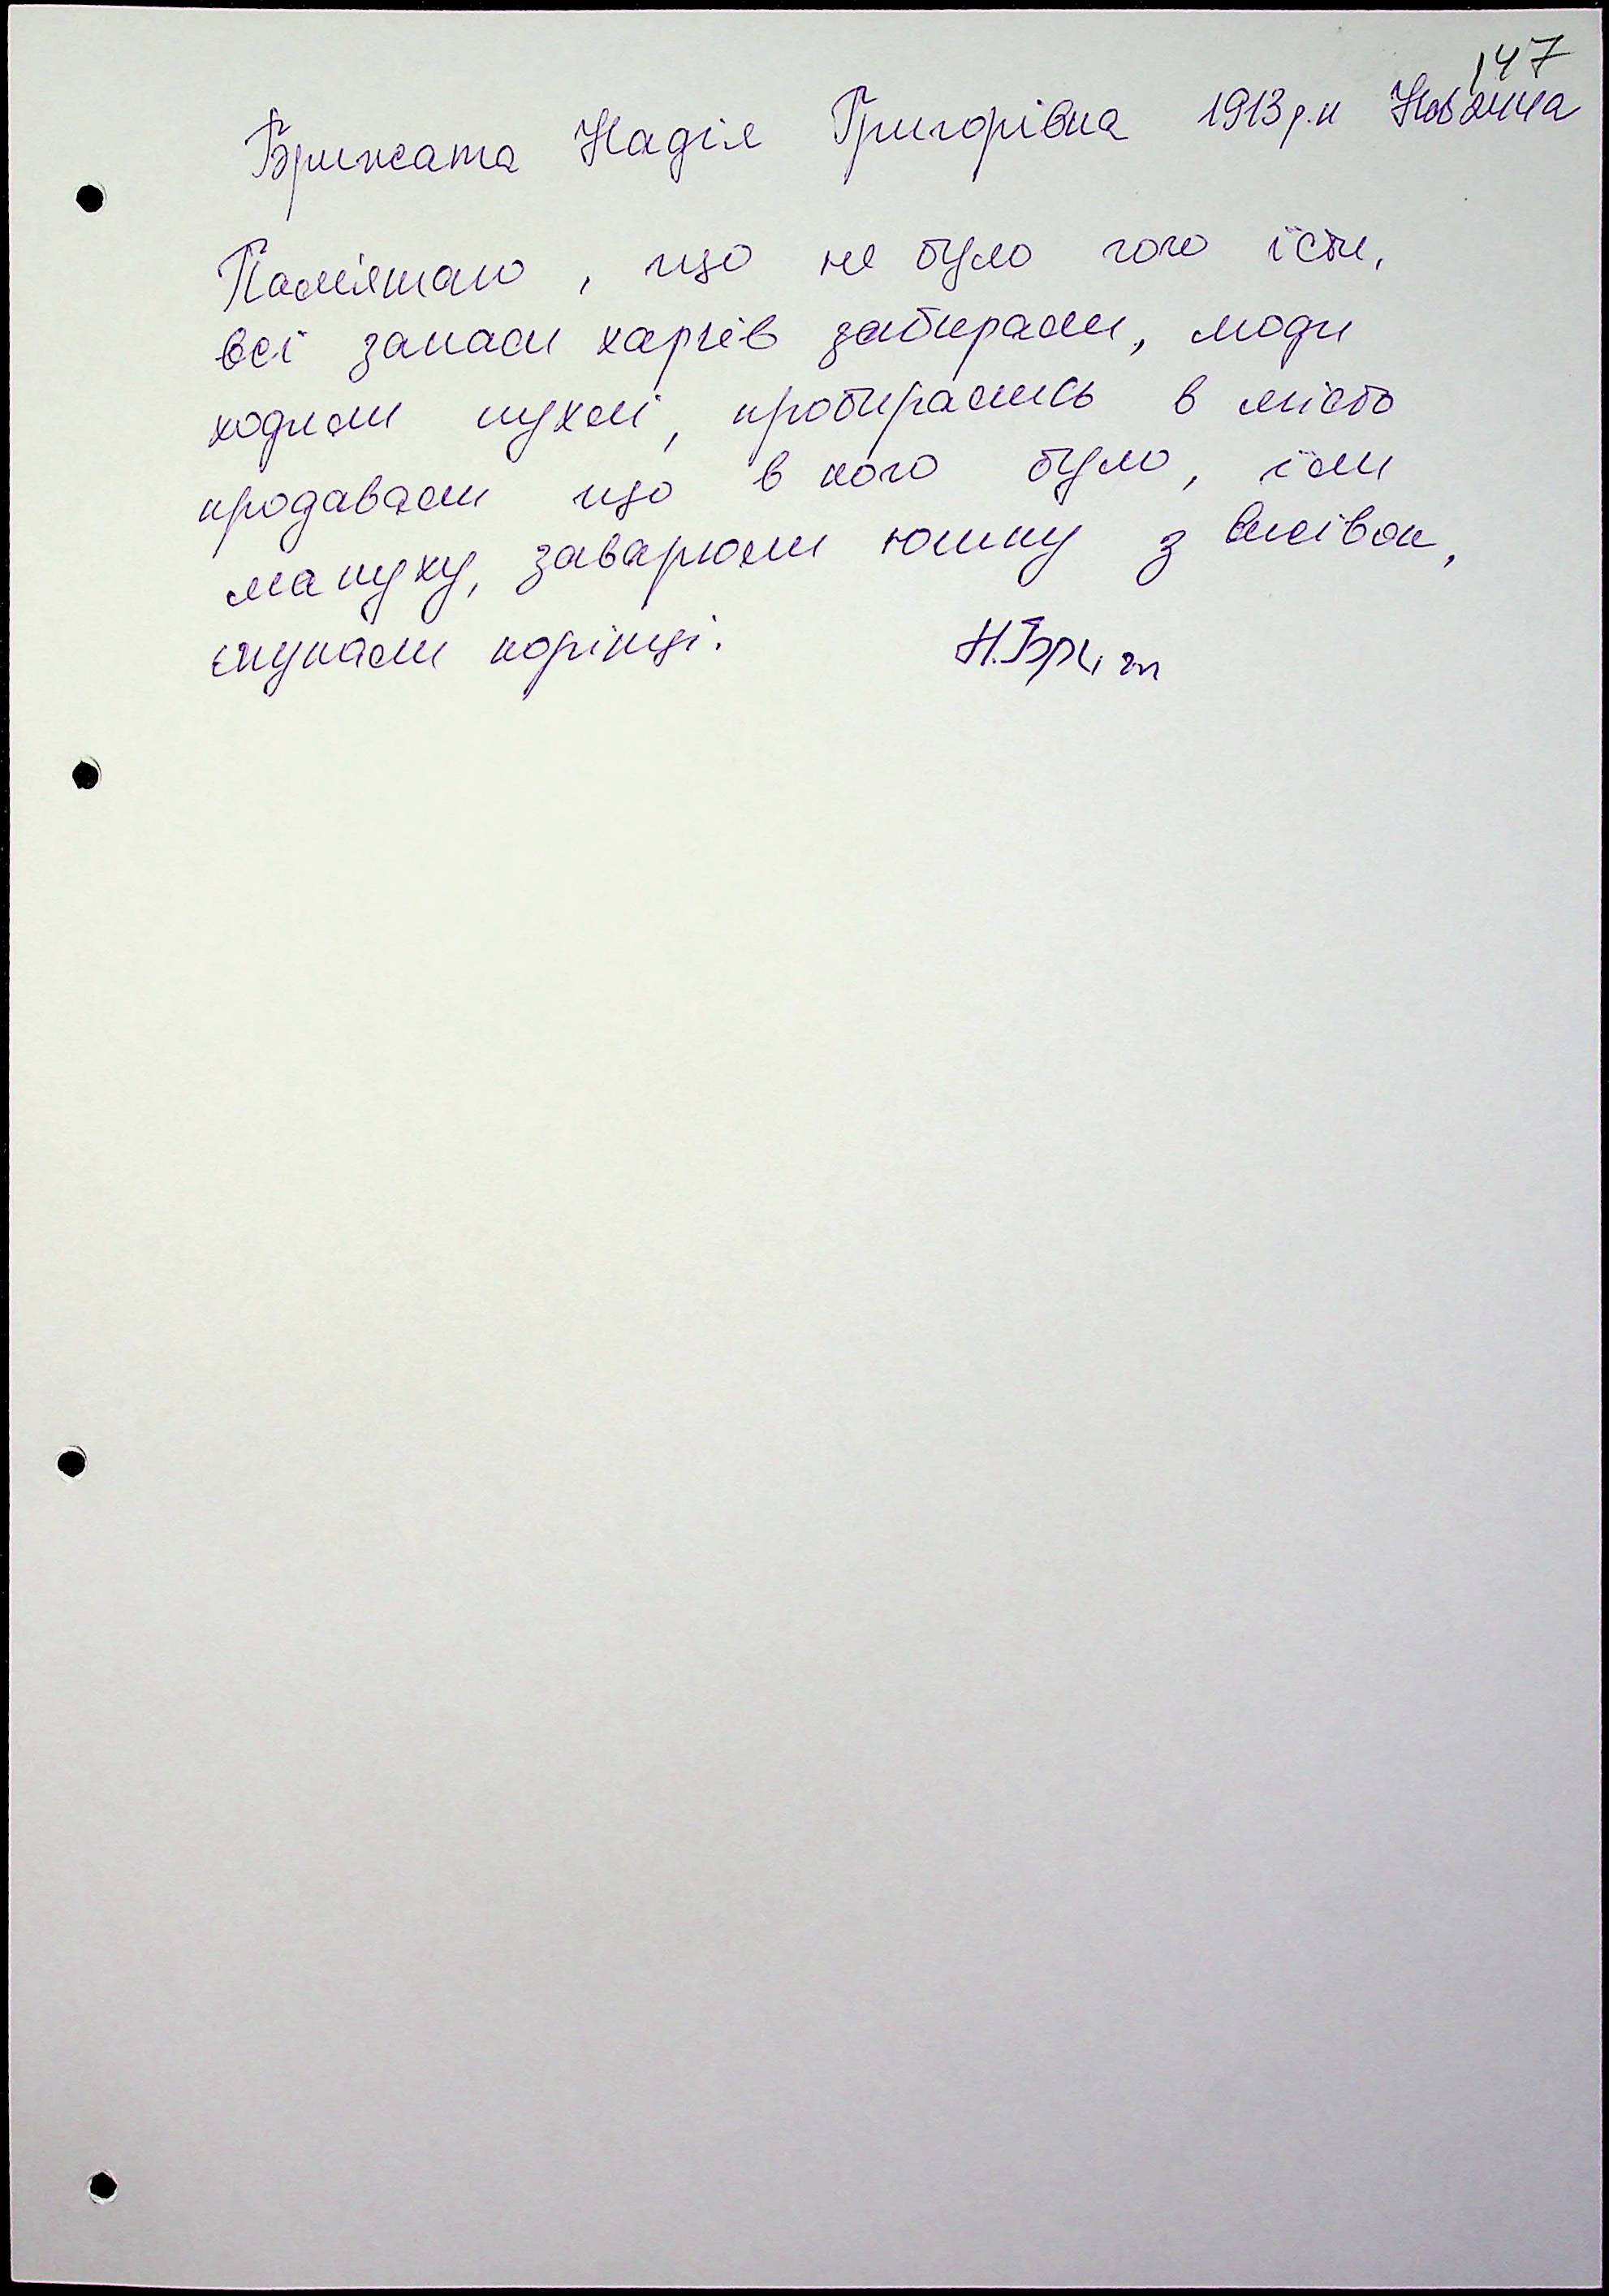 147
Брижата Надія Григорівна 1913 р.н Новачиха
Пам'ятаю, що не було чого їсти,
всі запаси харчів забирали, люди
ходили пухлі, пробирались в місто
продавали що в кого було, їли
макуху, заварюхи юшку з висівок,
шукали корінці.
Н.Бриж